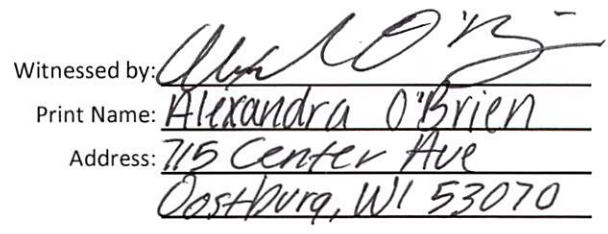 Witnessed by: Al O'B
Print Name: Alexandra O'Brien
Address: 715 Center Ave
Oostburg, WI 53070